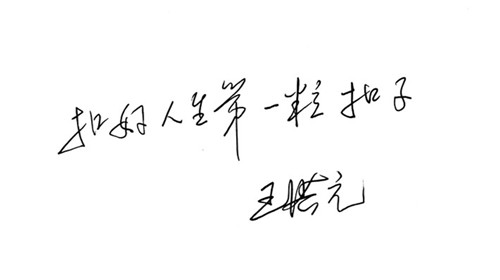 扣好人生第一粒扣子
王洪元